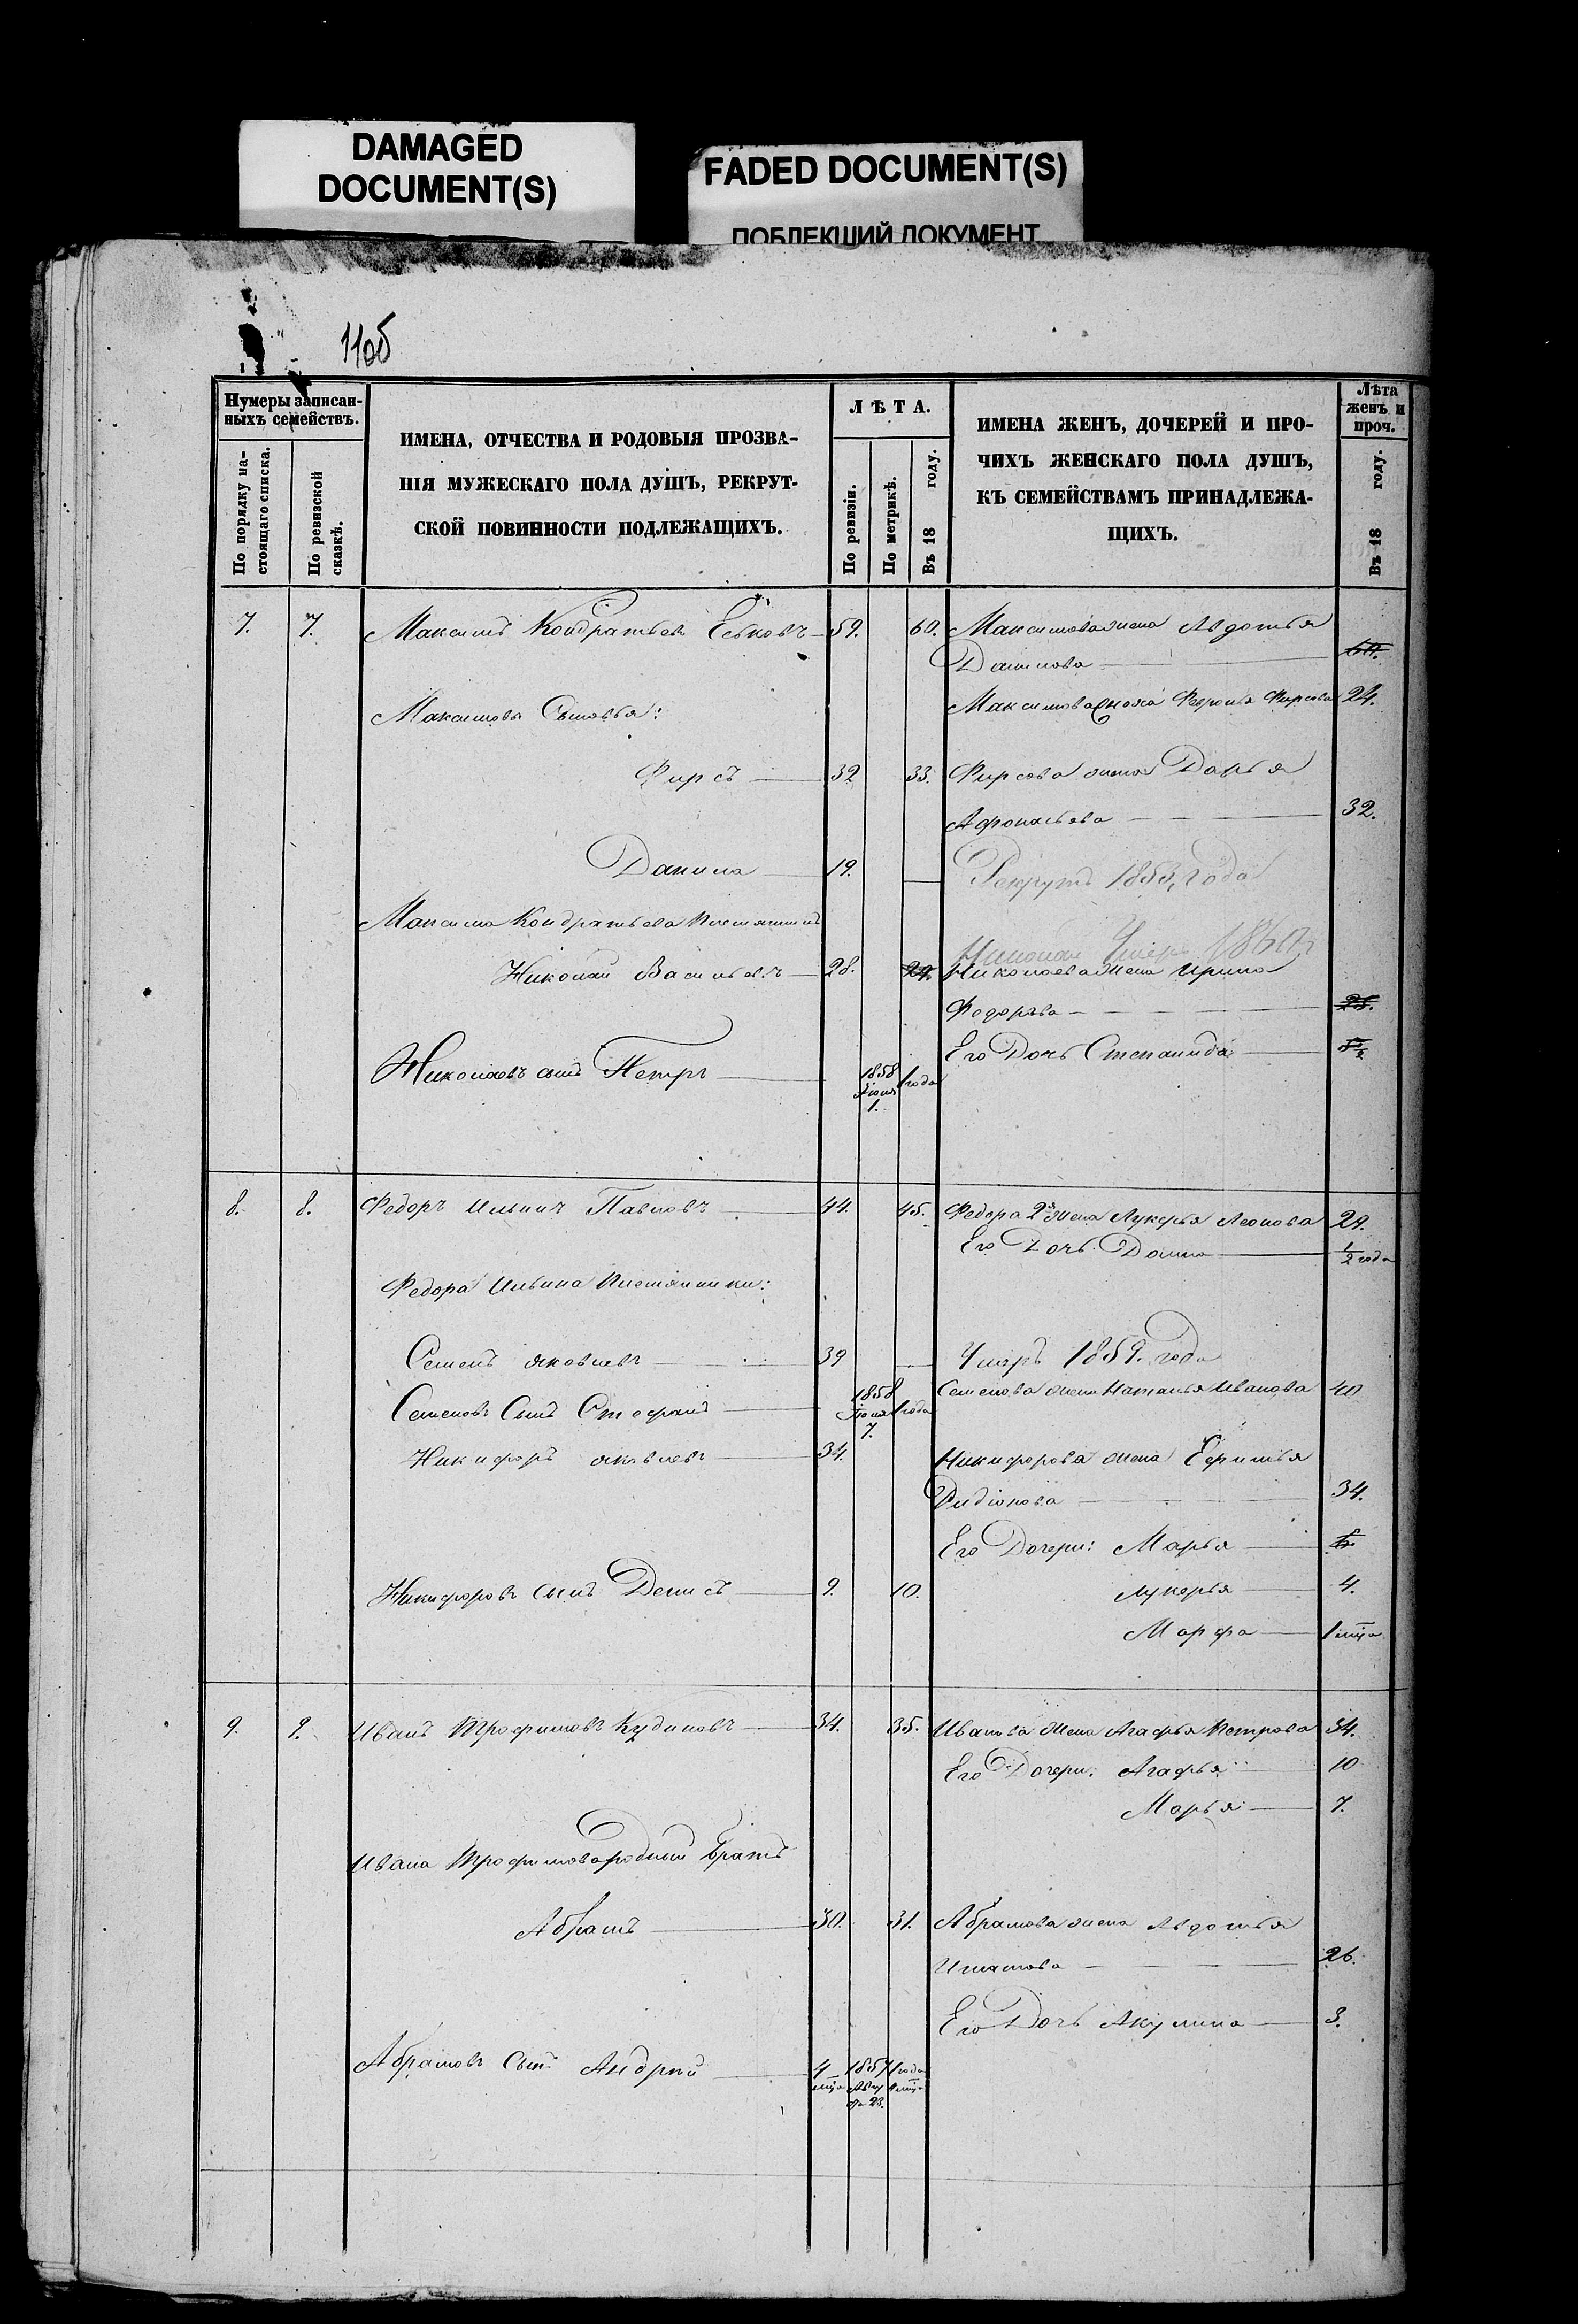 DAMAGED
DOCUMENT(S)
FADED DOCUMENT(S)
ПОБЛЕКШИЙ ДОКУМЕНТ
110б
Нумеры записан-
ныхъ семействъ.
По порядку на-
стоящаго списка.
По ревизской
сказкѣ.
ИМЕНА, ОТЧЕСТВА И РОДОВЫЯ ПРОЗВА-
НІЯ МУЖЕСКАГО ПОЛА ДУШЪ, РЕКРУТ-
СКОЙ ПОВИННОСТИ ПОДЛЕЖАЩИХЪ.
ЛѢТА.
По ревизіи.
По метрикѣ.
Въ 18 году.
ИМЕНА ЖЕНЪ, ДОЧЕРЕЙ И ПРО-
ЧИХЪ ЖЕНСКАГО ПОЛА ДУШЪ,
КЪ СЕМЕЙСТВАМЪ ПРИНАДЛЕЖА-
ЩИХЪ.
Лѣта
женъ и
проч.
Въ 18 году.
7. 7. Максимъ Кондратьевъ Еськовъ 59. 60. Максимова жена Авдотья
Данилова 60.
Максимовы Сыновья: Максимова сноха Февронья Фирсова 24.
Фирсъ 32 33. Фирсова жена Дарья
Афонасьева 32.
Данила 19. Рекрутъ 1853 года
Максима Кондратьева Племянникъ
Николай Умеръ 1860
Николай Васильевъ 28. 29. Николаева жена Ирина
Федорова 28.
Его Дочь Степанида
Николаевъ сынъ Петръ 1858 Іюня 1. 1 года
8. 8. Федоръ Ильинъ Павловъ 44. 45. Федора 2я жена Лукерья Леонова 29.
Его Дочь Домна 1/2 года
Федора Ильина Племянники:
Семенъ Яковлевъ 39 Умеръ 1859. года
Семеновъ Сынъ Стефанъ 1858 Іюня 7. 1 года Семенова жена Наталья Иванова 40
Никифоръ Яковлевъ 34. Никифорова жена Ефимья
Родіонова 34.
Его Дочери: Марья
Никифоровъ сынъ Денисъ 9. 10. Лукерья 4.
Марфа 1 мѣца
9. 9. Иванъ Трофимовъ Кудиновъ 34. 35. Иванова жена Агафья Петрова 34.
Его Дочери: Агафья 10
Марья 7.
Ивана Трофимова родный братъ
Абрамъ 30. 31. Абрамова жена Авдотья
Игнатова 26.
Его Дочь Акулина 3.
Абрамовъ Сынъ Андрей 4 мѣца 1857 Авгу ста 28. 1 года 4 мѣца